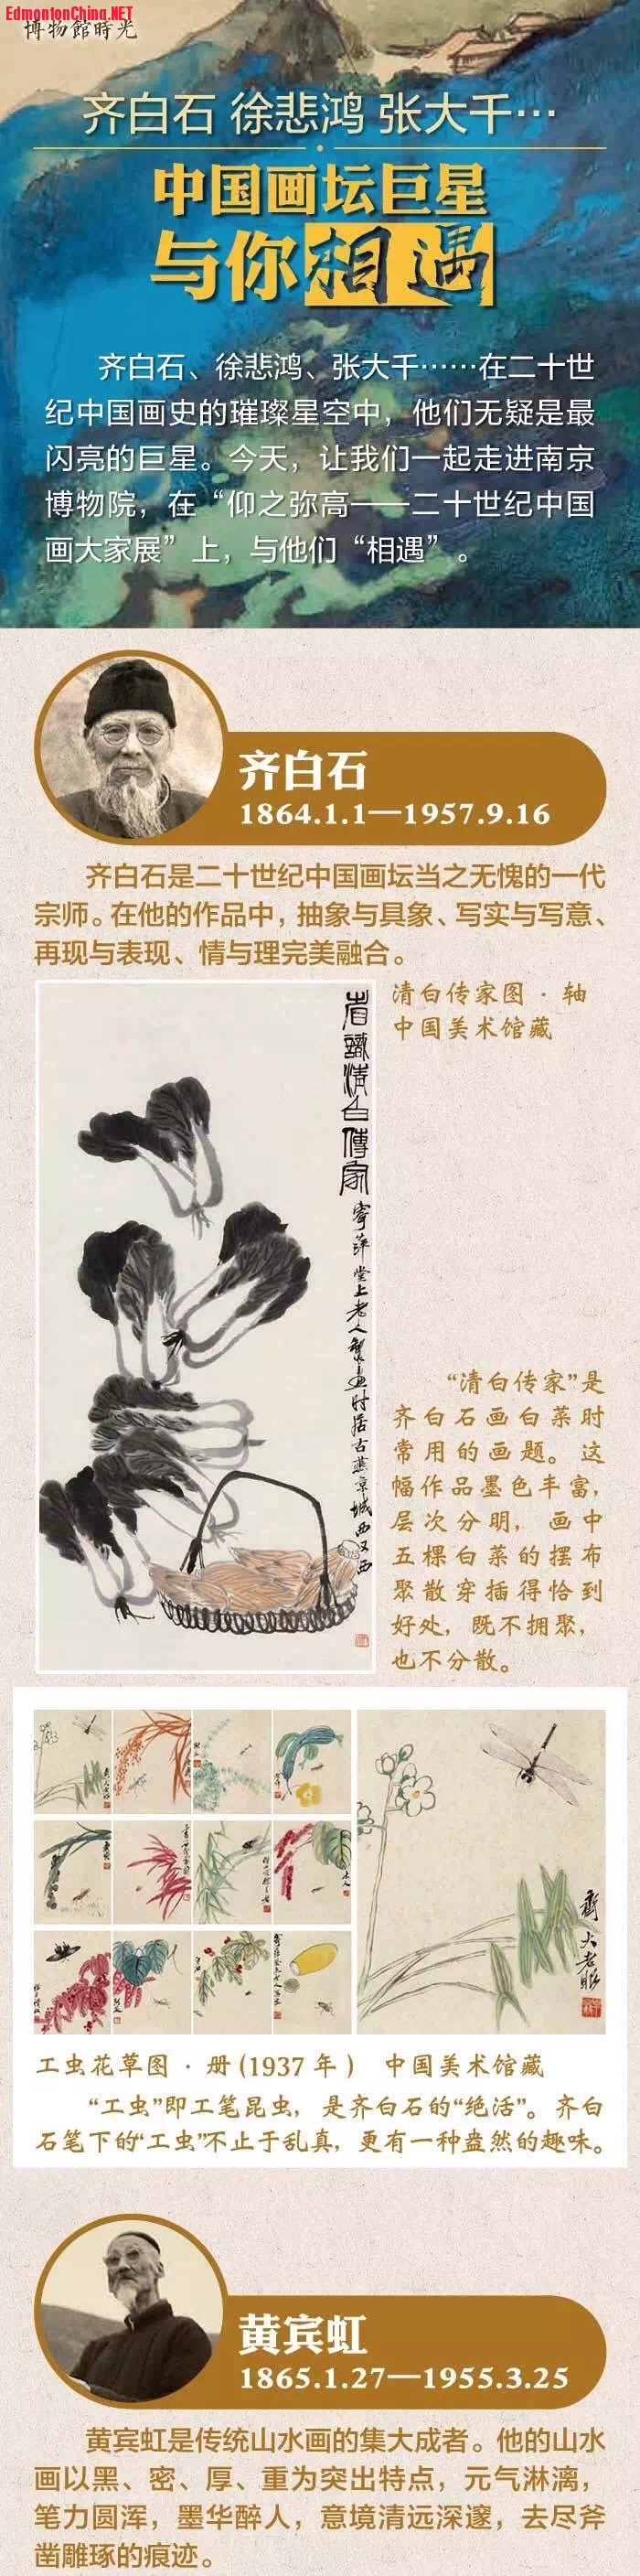 EdmontonChina.NET
博物館時光
齐白石 徐悲鸿 张大千…
中国画坛巨星
与你相遇
齐白石、徐悲鸿、张大千……在二十世
纪中国画史的璀璨星空中，他们无疑是最
闪亮的巨星。今天，让我们一起走进南京
博物院，在“仰之弥高——二十世纪中国
画大家展”上，与他们“相遇”。
齐白石
1864.1.1—1957.9.16
齐白石是二十世纪中国画坛当之无愧的一代
宗师。在他的作品中，抽象与具象、写实与写意、
再现与表现、情与理完美融合。
清白传家图 · 轴
中国美术馆藏
首識清白傳家
寄萍堂上老人製畫时居古燕京城西又西
“清白传家”是
齐白石画白菜时
常用的画题。这
幅作品墨色丰富，
层次分明，画中
五棵白菜的摆布
聚散穿插得恰到
好处，既不拥聚，
也不分散。
齊大老眼
工虫花草图 · 册(1937年) 中国美术馆藏
“工虫”即工笔昆虫，是齐白石的“绝活”。齐白
石笔下的“工虫”不止于乱真，更有一种盎然的趣味。
黄宾虹
1865.1.27—1955.3.25
黄宾虹是传统山水画的集大成者。他的山水
画以黑、密、厚、重为突出特点，元气淋漓，
笔力圆浑，墨华醉人，意境清远深邃，去尽斧
凿雕琢的痕迹。